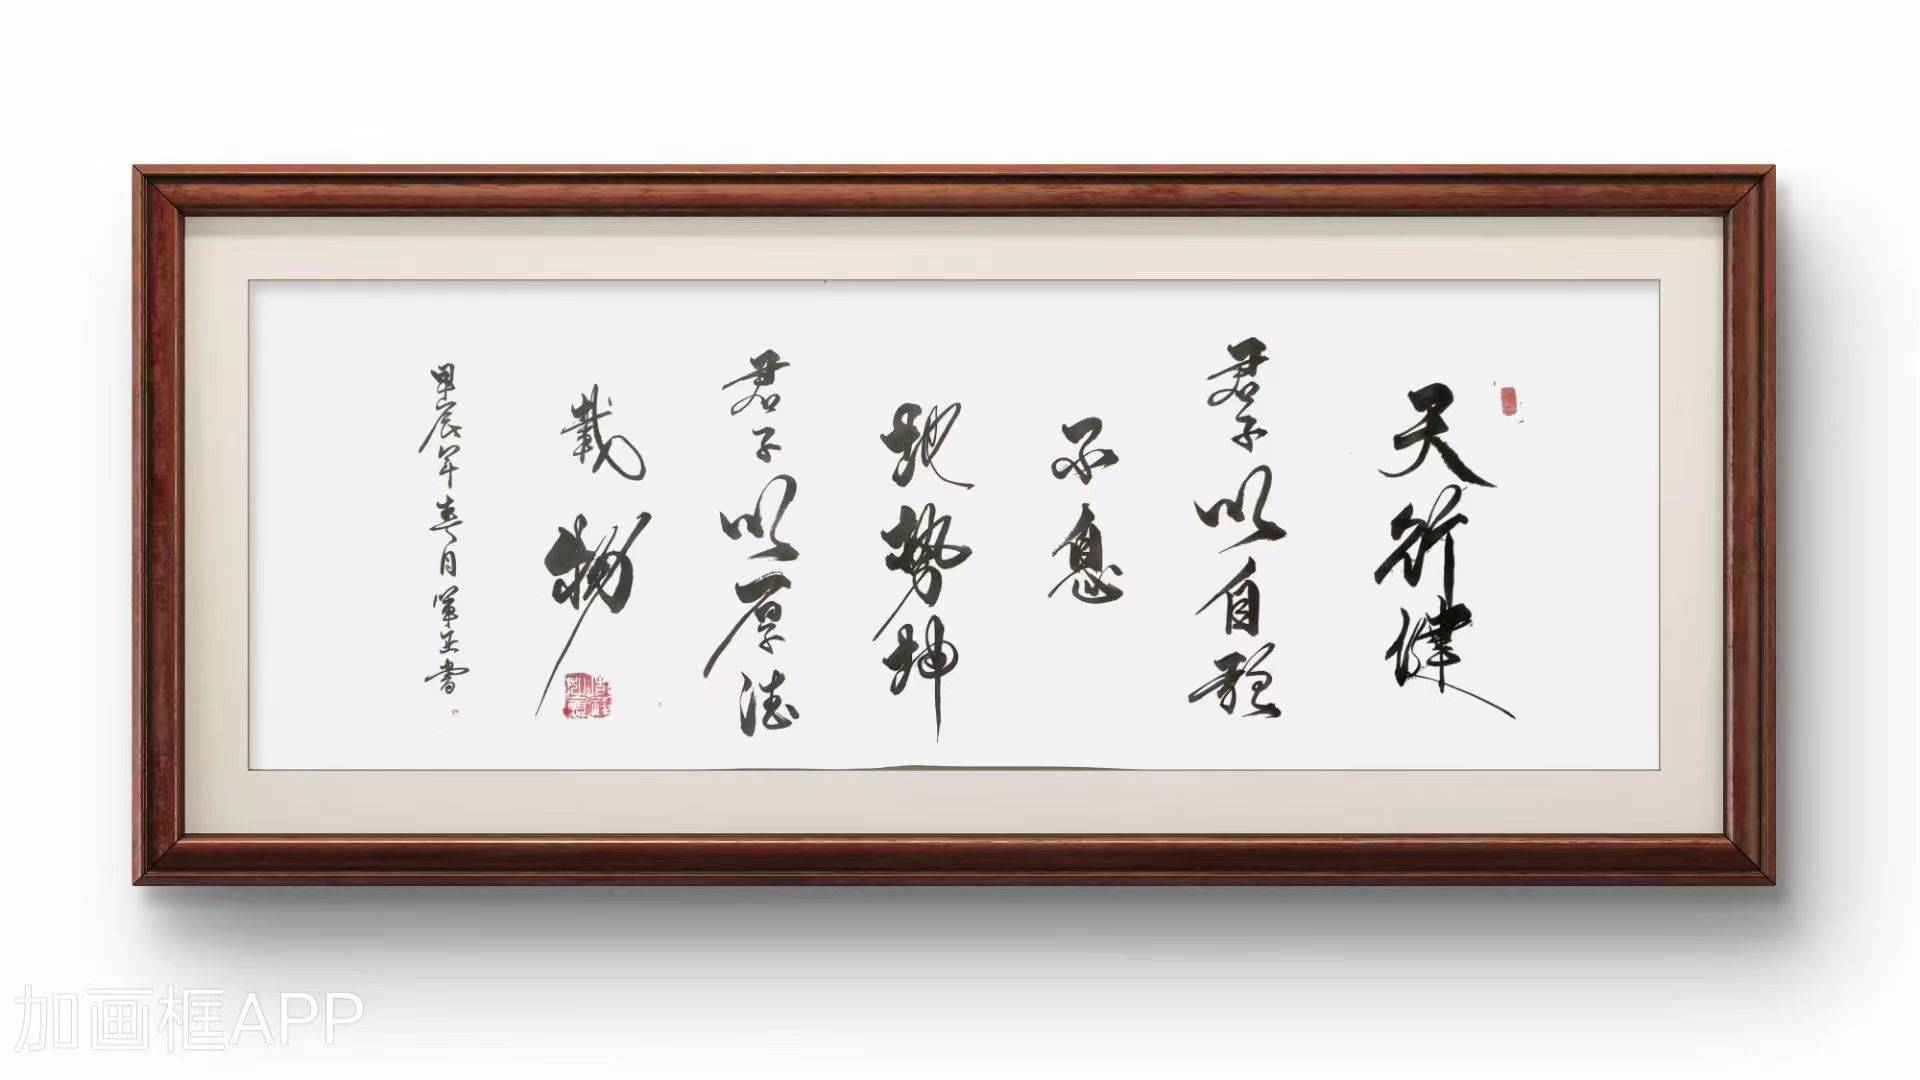 天行健
君子以自强
不息
地势坤
君子以厚德
载物
甲辰年春月军正书
加画框APP